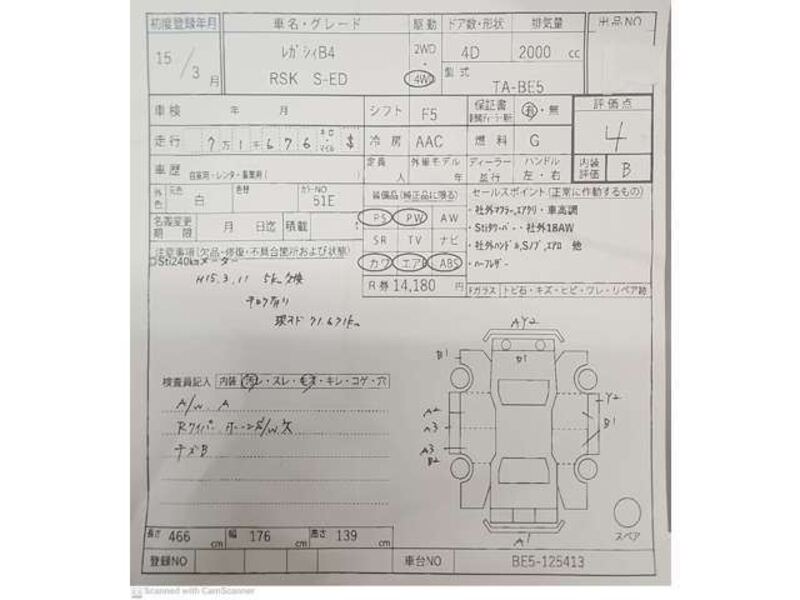 初度登録年月 車名・グレード 駆動 ドア数・形状 排気量 出品NO
15/3月 レガシィB4 2WD・4WD 4D 2000 cc
RSK S-ED 型式 TA-BE5
車検 年 月 シフト F5 保証書 有・無 評価点
4
走行 7万1千676 キロ・マイル $ 冷房 AAC 燃料 G
車歴 自家用・レンタ・事業用( ) 定員 人 外車モデル 年 ディーラー 並行 ハンドル 左・右 内装評価 B
外色 元色 白 色替 カラーNO 51E 装備品(純正品に限る) セールスポイント(正常に作動するもの)
名義変更期限 月 日迄 積載 PS PW AW
SR TV ナビ
カワ エアB ABS
・社外マフラー,エアクリ・車高調
・Stiタワーバー・社外18AW
・社外ハンドル,Sノブ,エアロ 他
・ハーフレザー
注意事項(欠品・修復・不具合箇所および状態)
□Sti240kmメーター
H15.3.11 5km交換
R券 14,180 円 Fガラス トビ石・キズ・ヒビ・ワレ・リペア跡
現メド 71.671km
AY2
B1 B1
Y2
A2 B1
A3
A3
B2
A1
スペア
検査員記入 内装 汚レ・スレ・キズ・キレ・コゲ・穴
A/W A
Rワイパー
ナズB
長さ 466 cm 幅 176 cm 高さ 139 cm
登録NO 車台NO BE5-125413
Scanned with CamScanner